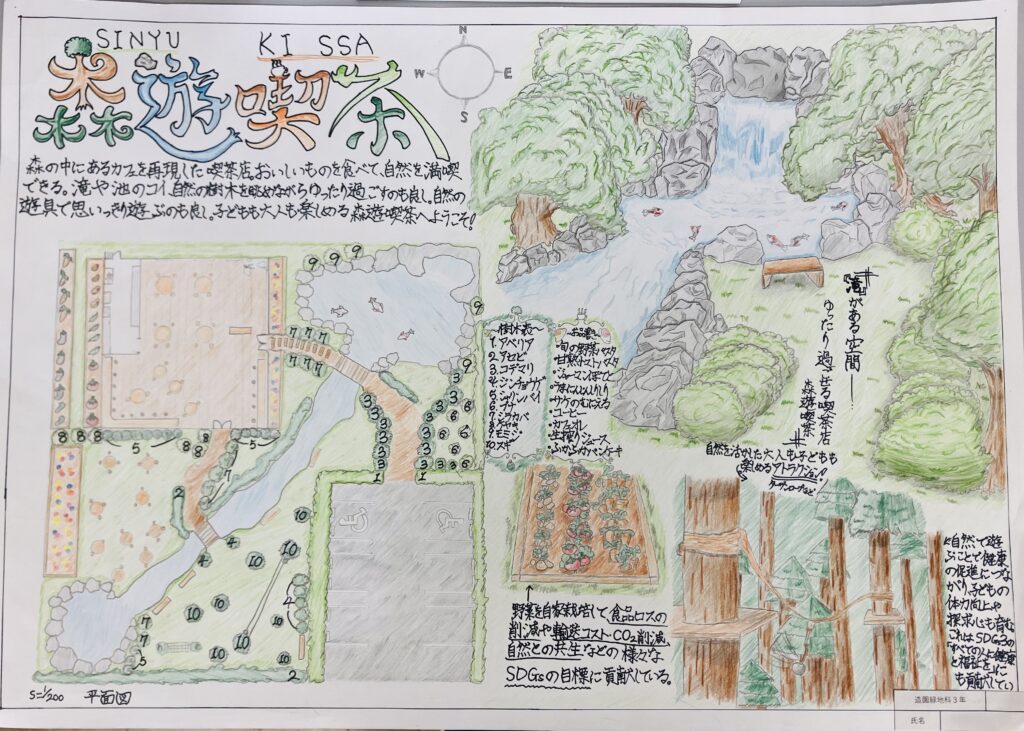 SINYU KISSA
森遊喫茶
N
W E
S
森の中にあるカフェを再現した喫茶店。おいしいものを食べて、自然を満喫
できる。滝や池のコイ、自然の樹木を眺めながらゆったり過ごすのも良し。自然の
遊具で思いっきり遊ぶのも良し。子どもも大人も楽しめる森遊喫茶へようこそ!
〜樹木表〜
1.アベリア
2.アセビ
3.コデマリ
4.シンチョウゲ
5.シャリンバイ
6.ツツジ
7.シラカバ
8.ケヤキ
9.モミジ
10.スギ
〜お品書〜
・旬の野菜パスタ
・甘熟トマトパスタ
・ジャーマンポテト
・にんじんしりしり
・サケのムニエル
・コーヒー
・カフェオレ
・生搾りジュース
・ふかふかパンケーキ
#『滝』がある空間―
ゆったり過ごせる喫茶店
森遊喫茶#
自然を活かした大人も子どもも
楽しめるアトラクション!
ターザンロープなど
野菜を自家栽培して食品ロスの
削減や輸送コスト・CO2削減
自然との共生などの様々な
SDGsの目標に貢献している。
自然で遊
ぶことで健康
の促進につな
がり、子どもの
体力向上や
探求心も育む
これはSDGs3の
「すべての人に健康
と福祉を」に
も貢献してい
S=1/200 平面図
造園緑地科3年
氏名